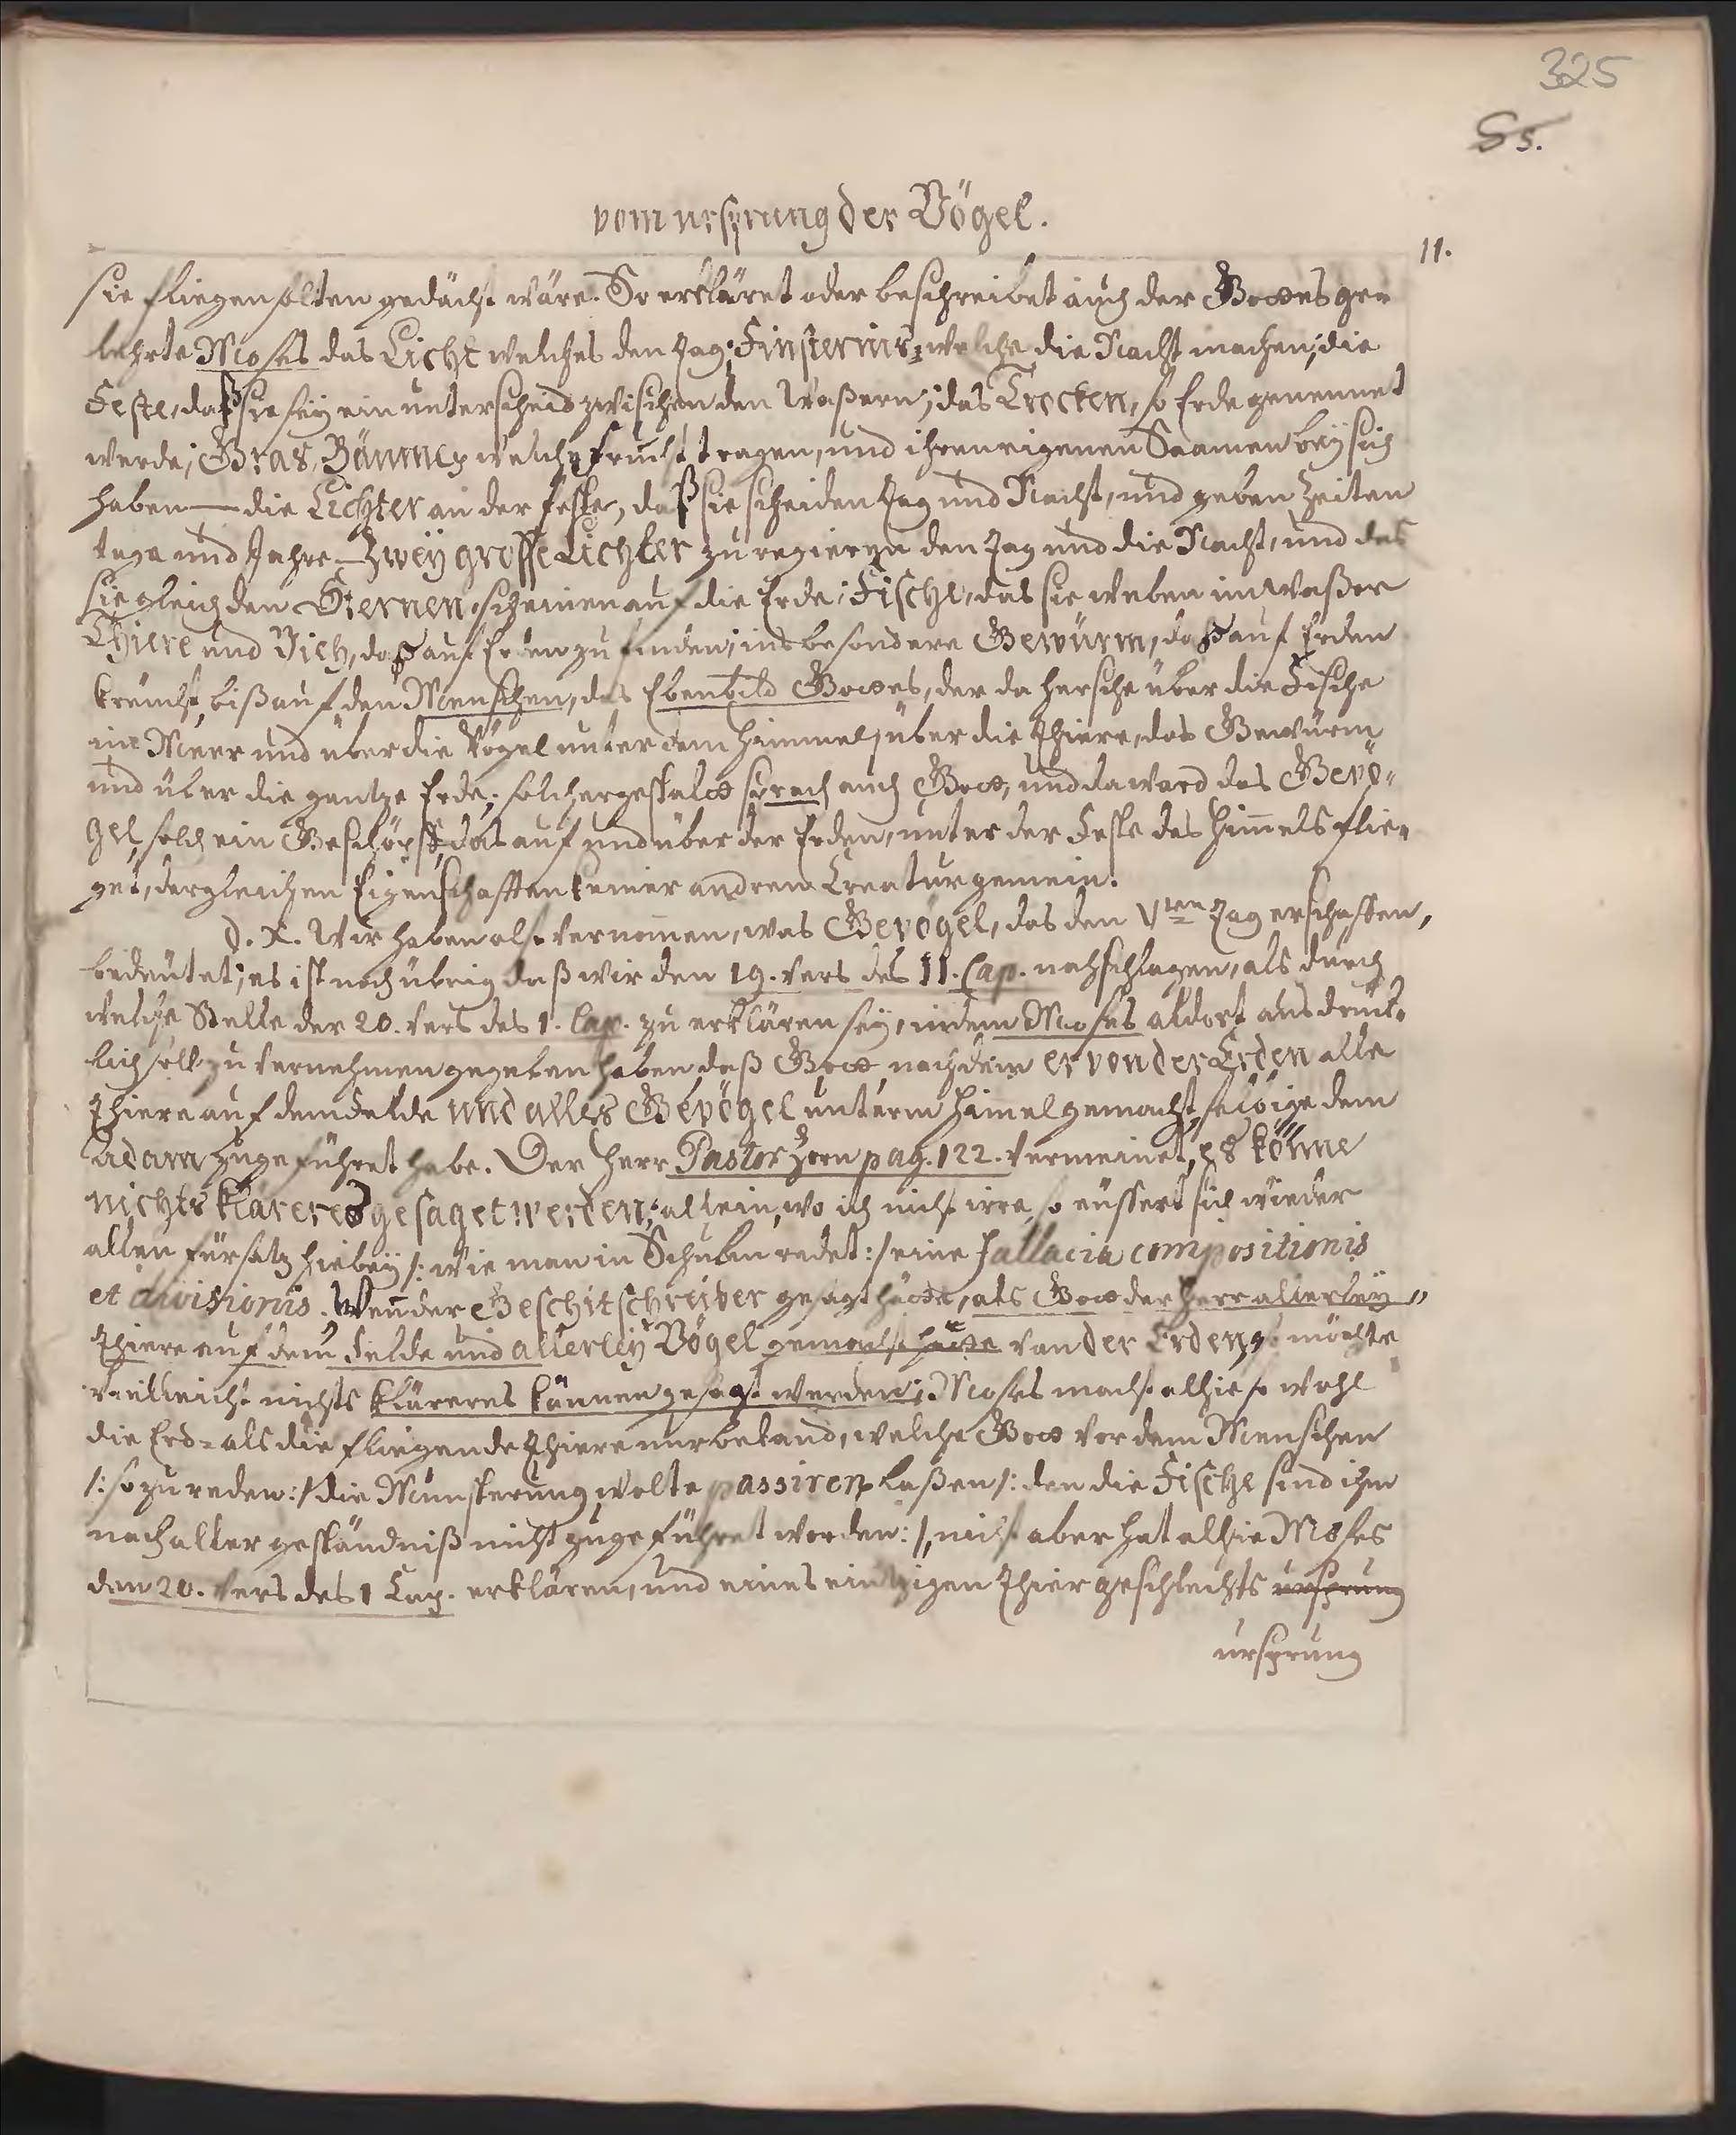 325
S 5.
vom ursprung der Vögel.
11.
sie fliegen solten gedacht wäre. So erkläret oder beschreibet auch der Gottes ge-
lehrte Moses das Licht welches den Tag; Finsternis, welche die Nacht machen; die
Feste, daß sie sey ein unterscheid zwischen den Waßern; das Trocken, so Erde genennet
werde; Gras, Bäume, welche frucht tragen, und ihren eigenen Saamen bey sich
haben — die Lichter an der feste, daß sie scheiden Tag und Nacht, und geben Zeiten
tage und Jahre — Zwey grosse Lichter zu regieren den Tag und die Nacht, und das
sie gleich den Sternen scheinen auf die Erde; Fische, das sie weben im Waßer
Thiere und Vieh, daß auf Erden zu finden; insbesondere Gewürm, daß auf Erden
kreucht, biß auf den Menschen, das Ebenbild Gottes, der da hersche über die Fische
im Meer und über die Vögel unter dem Himmel, über die Thiere, das Gewürm
und über die gantze Erde; solchergestalt sprach auch Gott, und da ward das Gevö-
gel, solch ein Geschöpff, das auf und über der Erden, unter der Feste des Himels flie-
get, dergleichen Eigenschafften keiner andren Creatur gemein.
§. X. Wir haben also vernomen, was Gevögel, das den Vten Tag erschaffen,
bedeütet; es ist noch übrig daß wir den 19. Vers des II. Cap. nachschlagen, als durch
welche Stelle der 20. Vers des 1. Cap. zu erklären sey, indem Moses aldort ausdrük-
lich soll zu vernehmen gegeben haben, daß Gott, nachdem er von der Erden alle
Thiere auf dem Felde und alles Gevögel unterm Himel gemacht, selbige dem
Adam zugeführet habe. Der Herr Pastor Zorn pag. 122. vermeinet, es könne
nichts klareres gesaget werden; allein, wo ich nicht irre, so eüssert sich wieder
allen fürsatz hiebey /: wie man in Schulen redet :/ eine fallacia compositionis
et divisionis. Wenn der Geschitschreiber gesagt hätte, als Gott der Herr allerley
Thiere auf dem Felde und allerley Vögel gemacht hatte von der Erden, so möchte
vielleicht nichts kläreres können gesagt werden; Moses macht alhie so wohl
die Erd- als die fliegende Thiere nur bekand, welche Gott vor dem Menschen
/: so zu reden :/ die Munsterung wolte passiren laßen /: den die Fische sind ihm
nach aller geständniß nicht zugeführet worden :/, nicht aber hat alhie Moses
den 20. Vers des 1 Cap. erklären, und eines eintzigen Thier geschlechts ursprung
ursprung